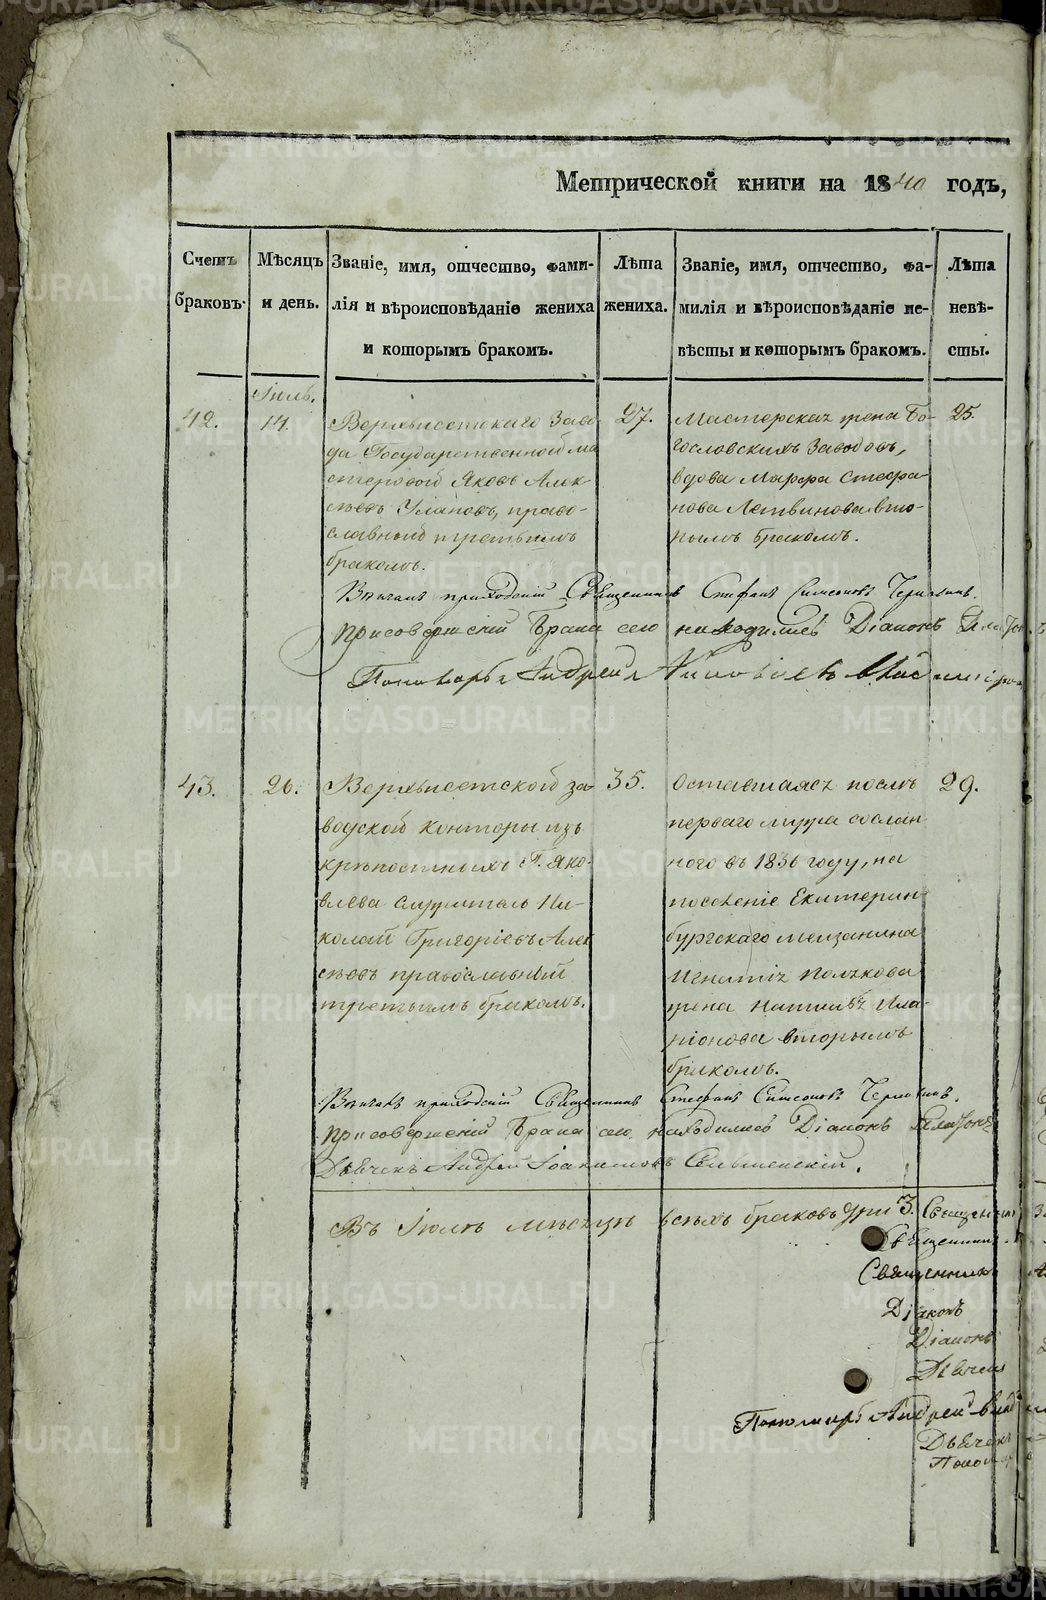 Метрической книги на 1840 годъ,
Счетъ браковъ.
Мѣсяцъ и день.
Званіе, имя, отчество, фами-
лія и вѣроисповѣданіе жениха
и которымъ бракомъ.
Лѣта
жениха.
Званіе, имя, отчество, фа-
милія и вѣроисповѣданіе не-
вѣсты и которымъ бракомъ.
Лѣта
невѣ-
сты.
42.
14.
Верхъисетскаго Заво-
да Государственной ма
стеровой Яковъ Алек
сѣевъ Улановъ, право-
славный третьимъ
бракомъ.
27.
Мастерская жена Бо-
гословскихъ Заводовъ,
вдова Марфа Стефа
нова Летвинова вто-
рымъ бракомъ.
25.
Вѣнчалъ приходскій Священникъ Стефанъ Симеоновъ
При совершеніи Брака сего находились Діаконъ
Пономарь Андрей
43.
26.
Верхъисетской за-
водской конторы изъ
крѣпостныхъ Г. Яко-
влева служитель Ни-
колай Григорьевъ Алек
сѣевъ православный
третьимъ бракомъ.
35.
Оставшаяся послѣ
перваго мужа сослан
ного въ 1836 году, на
поселеніе Екатерин-
бургскаго мещанина
Игнатія Полякова
жена Наталья Ила-
ріонова вторымъ
бракомъ.
29.
Вѣнчалъ приходскій Священникъ Стефанъ Симеоновъ
При совершеніи Брака сего находились Діаконъ
Дьячекъ Андрей Іоакимовъ
Въ Іюлѣ мѣсяцѣ всѣхъ браковъ три 3. Священник
Священник
Священникъ
Діаконъ
Діаконъ
Дьячекъ
Пономарь Андрей
Дьячекъ
Поном
METRIKI.GASO-URAL.RU